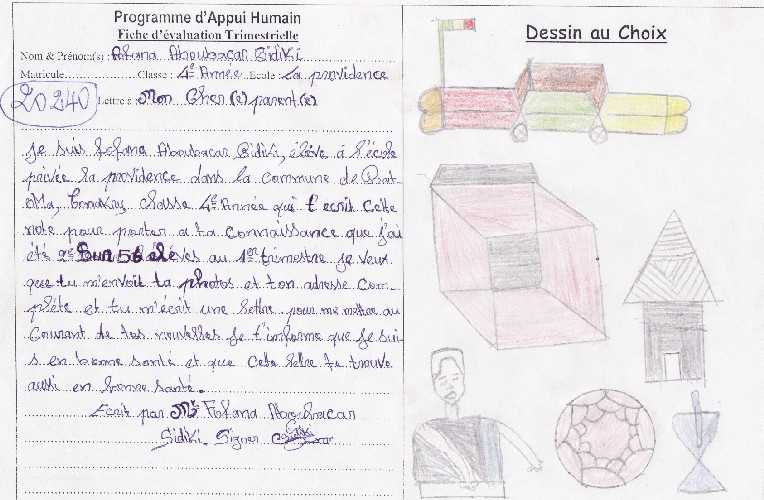 Programme d'Appui Humain
Fiche d'évaluation Trimestrielle
Nom & Prénom(s) : Fofana Aboubacar Sidiki
Matricule............... Classe : 4e Année Ecole : La providence
20240 Lettre à : Mon Cher(e) parent(e)
Je suis Fofana Aboubacar Sidiki, élève à l'école
privée la providence dans la Commune de Rat-
oma, Conakry, Classe 4e Année qui t'ecrit Cette
note pour porter a ta Connaissance que j'ai
été 2e Sur 56 élèves au 1er trimestre je veux
que tu m'envoit ta photos et ton adresse Com-
plète et tu m'écrit une lettre pour me mettre au
Courant de tes nouvelles Je t'informe que Je sui-
s en bonne santé et que Cette lettre te trouve
aussi en bonne santé.
Ecrit par Mr Fofana Aboubacar
Sidiki Signer Sidiki
Dessin au Choix